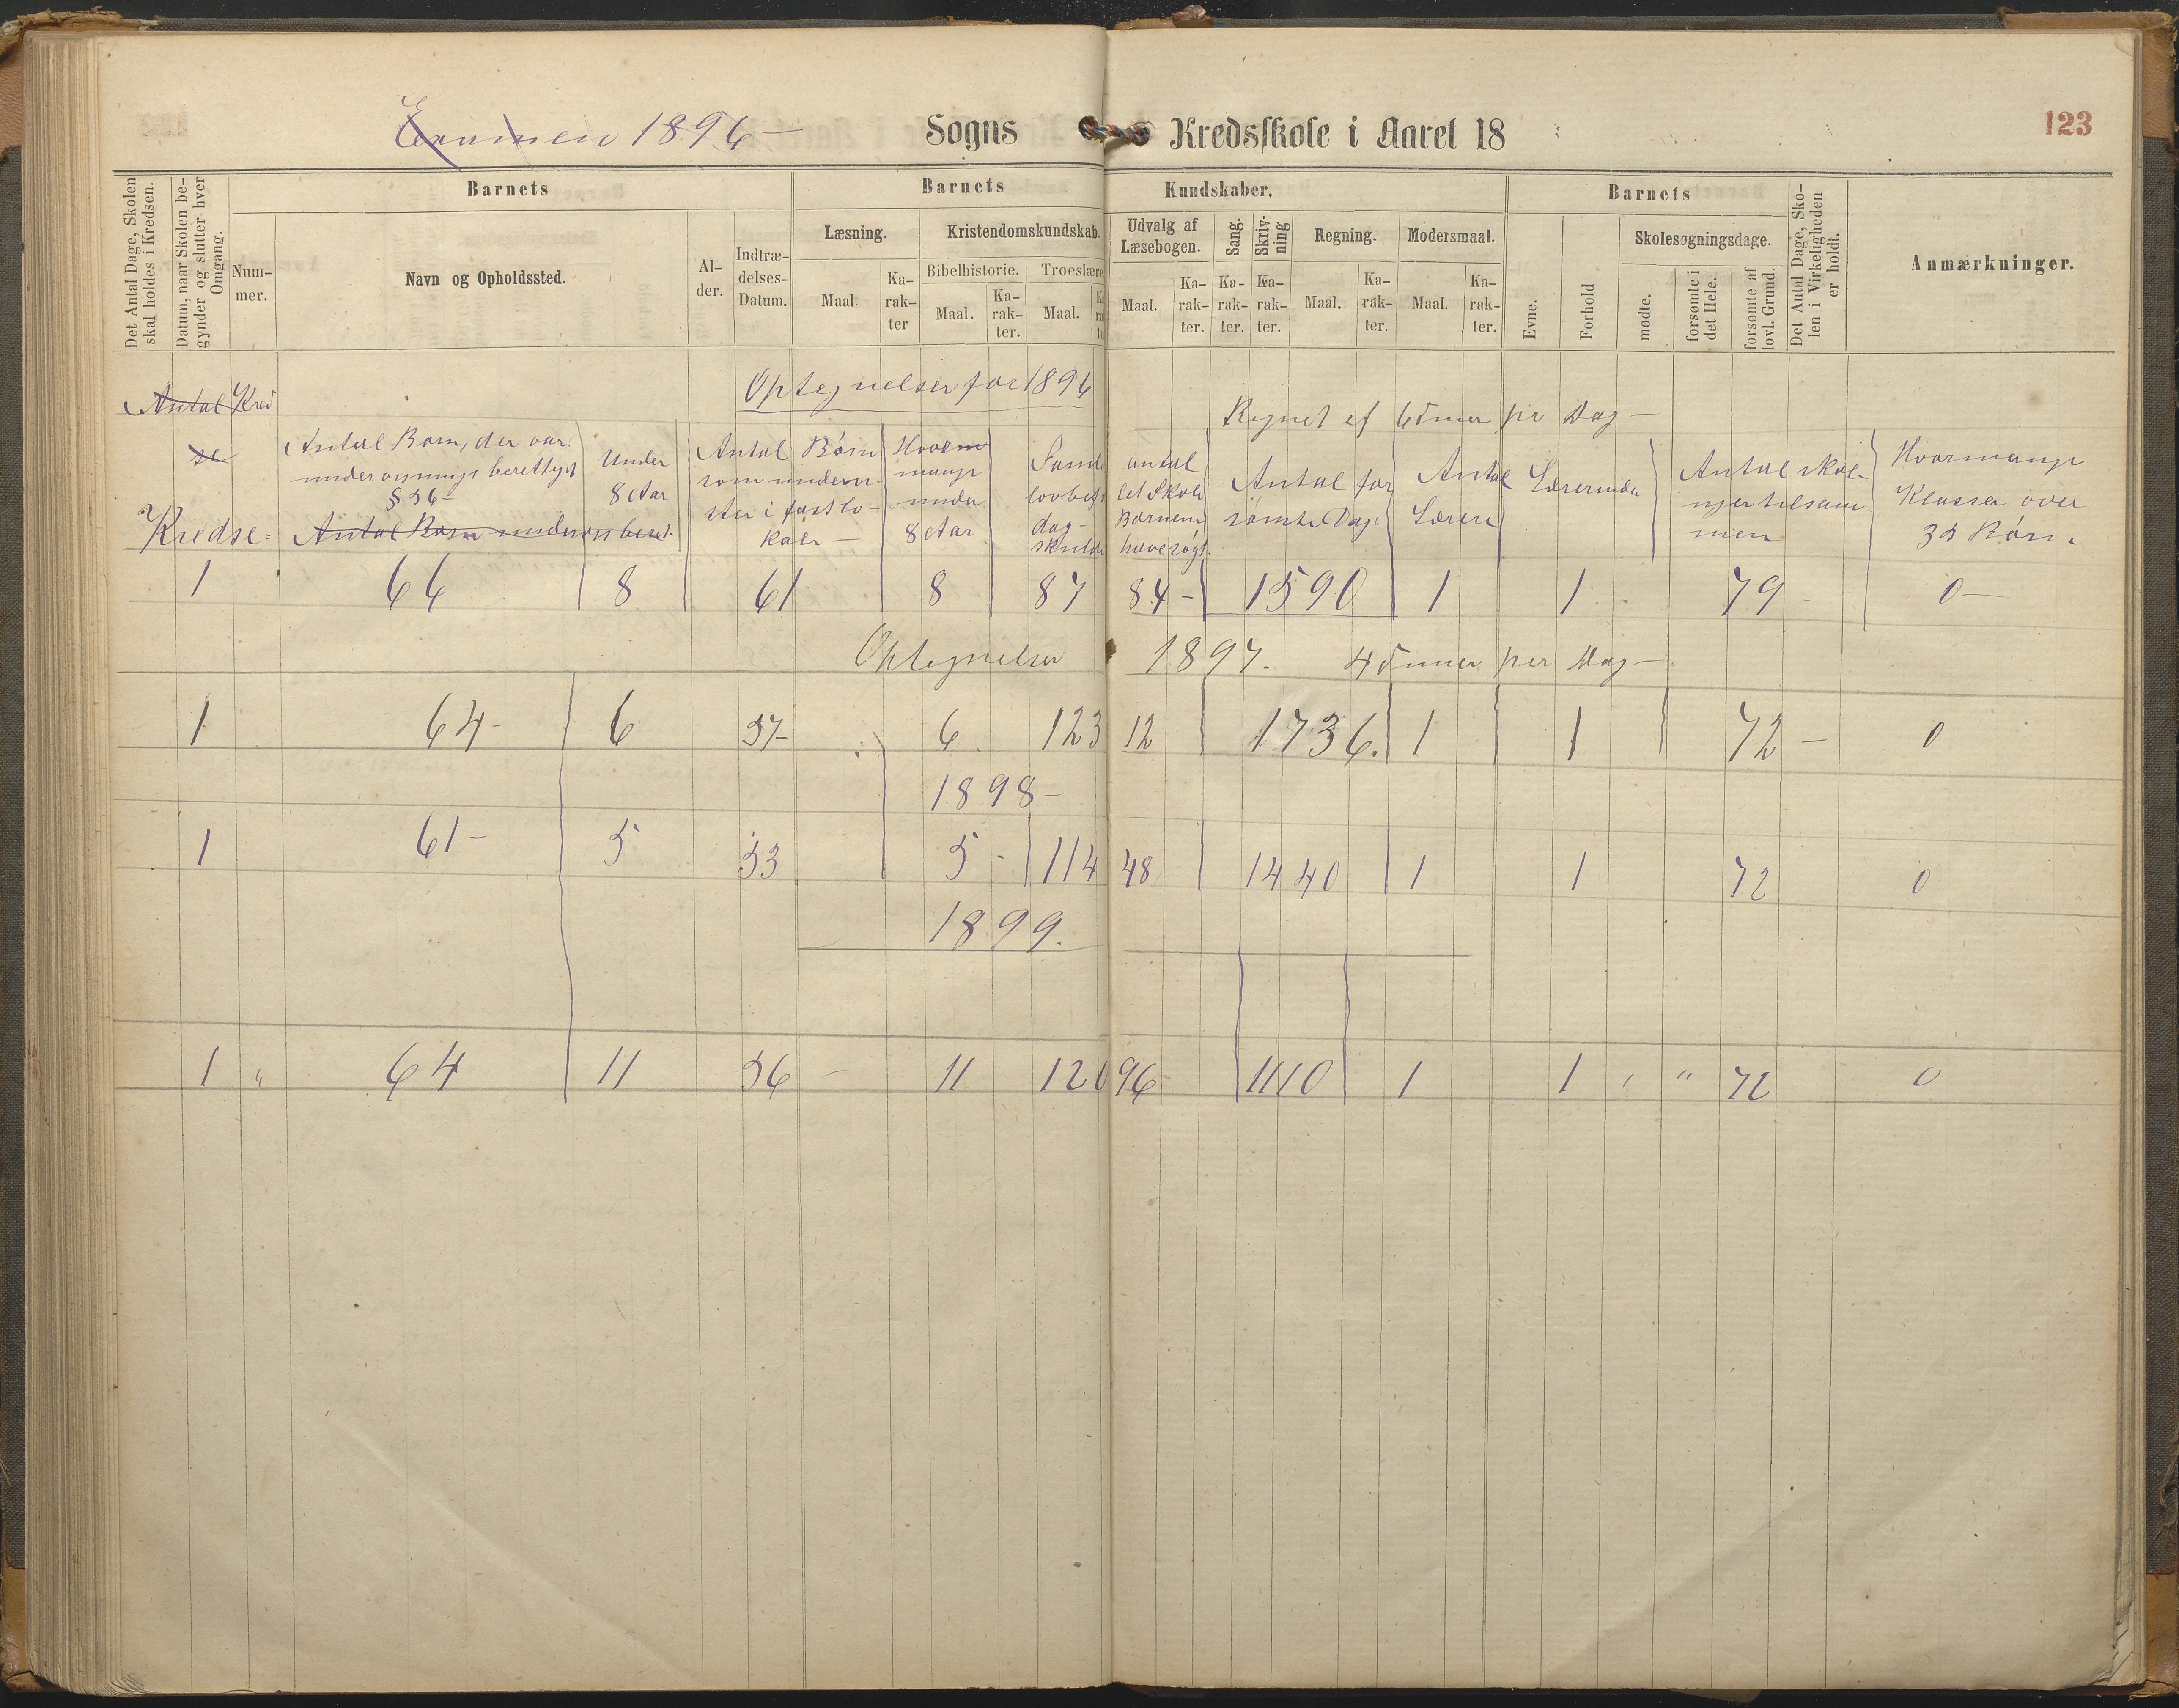 Examen 1896 – Sogns Kredsskole i Aaret 18
123
Det Antal Dage, Skolen skal holdes i Kredsen.
Datum, naar Skolen begynder og slutter hver Omgang.
Barnets
Nummer.
Navn og Opholdssted.
Alder.
Indtrædelses-Datum.
Barnets Kundskaber.
Læsning.
Maal. Karakter
Kristendomskundskab.
Bibelhistorie. Troeslære
Maal. Karakter. Maal. Karakter
Udvalg af Læsebogen.
Maal. Karakter.
Sang. Karakter.
Skrivning Karakter.
Regning.
Maal. Karakter.
Modersmaal.
Maal. Karakter.
Barnets
Evne.
Forhold
Skolesøgningsdage.
mødte.
forsømte i det Hele.
forsømte af lovl. Grund.
Det Antal Dage, Skolen i Virkeligheden er holdt.
Anmærkninger.
Optegnelser for 1896
Regnet af 6 Timer pr Dag –
Antal Kredse
Kredse
Antal Børn, der var undervisnings berettiget § 36 –
Antal Børn
Under 8 Aar
Antal Børn som underv- i fast lo- kale –
Hvor mange under 8 Aar
Antal forsømte Dage
Antal Lærere
Lærerinder
Antal skoleuger tilsammen
Hvormange Klasser over 35 Børn
1 66 8 61 8 87 84 – 1590 1 1 79 – 0 –
Optegnelser 1897. 4 Timer per Dag –
1 64 – 6 57 – 6 123 12 1736. 1 1 72 – 0
1898 –
1 61 – 5 53 5 – 114 48 1440 1 1 72 0
1899.
1 " 64 11 56 – 11 120 96 1110 1 1 " " 72 0